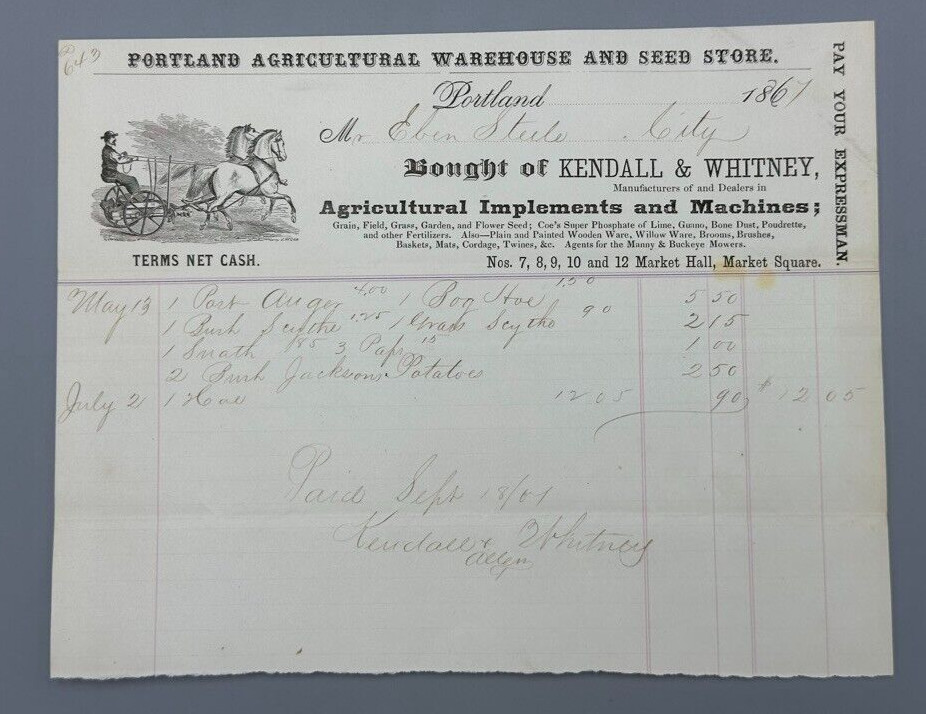 643
PORTLAND AGRICULTURAL WAREHOUSE AND SEED STORE.
PAY YOUR EXPRESSMAN.
Portland 1867
Mr Eben Steele City
Bought of KENDALL & WHITNEY,
Manufacturers of and Dealers in
Agricultural Implements and Machines;
Grain, Field, Grass, Garden, and Flower Seed; Coe's Super Phosphate of Lime, Guano, Bone Dust, Poudrette,
and other Fertilizers. Also—Plain and Painted Wooden Ware, Willow Ware, Brooms, Brushes,
Baskets, Mats, Cordage, Twines, &c. Agents for the Manny & Buckeye Mowers.
TERMS NET CASH.
Nos. 7, 8, 9, 10 and 12 Market Hall, Market Square.
May 13 1 Post Auger 4,00 1 Bog Hoe 1,50 5 50
1 Bush Scythe 1.25 1 Grass Scythe 90 2 15
1 Snath 85 3 Paps 15 1 00
2 Bush Jacksons Potatoes 2 50
July 2 1 Hoe 12 05 90 $12 05
Paid Sept 18/67
Kendall & Whitney